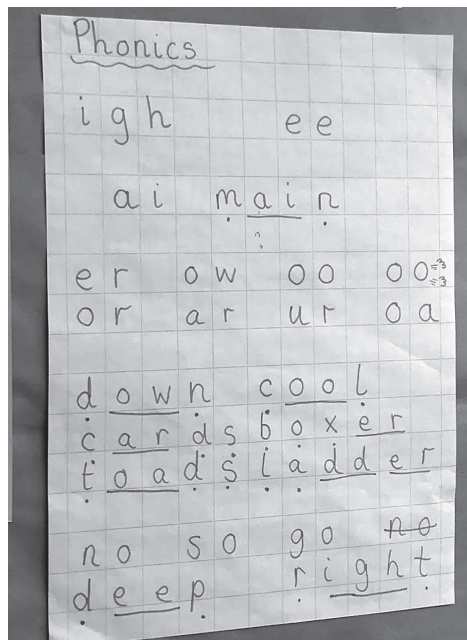 Phonics
igh ee
ai main
er ow oo oo
or ar ur oa
down cool
cards boxer
toads ladder
no so go no
deep right